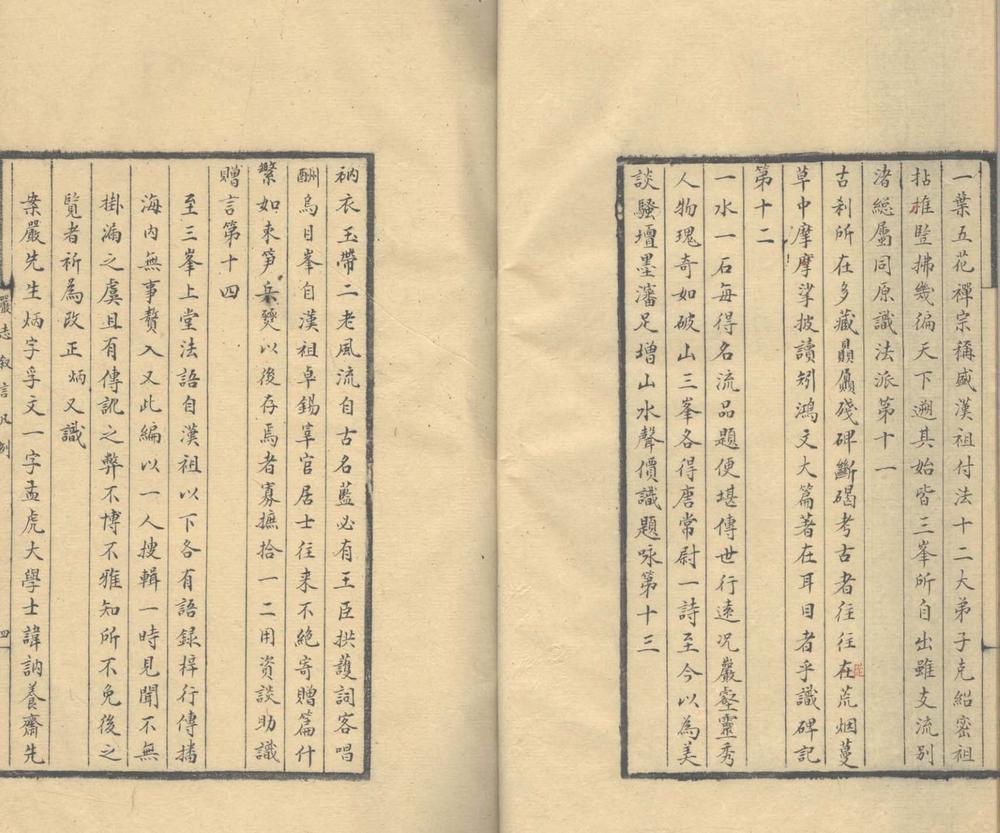 一葉五花禪宗稱盛漢祖付法十二大弟子克紹密祖
拈椎竪拂幾徧天下遡其始皆三峯所自出雖支流别
渚総屬同原識法派第十一
古刹所在多藏贔屭殘碑斷碣考古者往往在荒烟蔓
草中摩摩挲披讀矧鴻文大篇著在耳目者乎識碑記
第十二
一水一石每得名流品題便堪傳世行遠况巖壑靈秀
人物瑰奇如破山三峯各得唐常尉一詩至今以為美
談騷壇墨瀋足增山水聲價識題咏第十三
衲衣玉帶二老風流自古名藍必有王臣拱護詞客唱
酬烏目峯自漢祖卓錫宰官居士往来不絶寄贈篇什
繁如束笋兵燹以後存焉者寡摭拾一二用資談助識
贈言第十四
至三峯上堂法語自漢祖以下各有語録梓行傳播
海内無事贅入又此編以一人搜輯一時見聞不無
掛漏之虞且有傳訛之弊不博不雅知所不免後之
覧者祈為改正 炳又識
案嚴先生炳字孚文一字孟虎大學士諱訥養齋先
嚴志敘言凡例
四